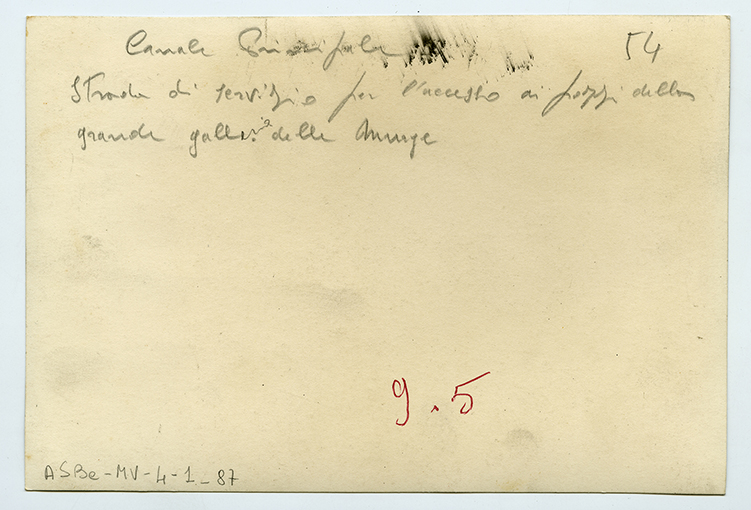 Canale Principale 54
Strada di servizio per l'accesso ai pozzi della
grande galleria delle Murge
9.5
ASBe-MV-4-1-87